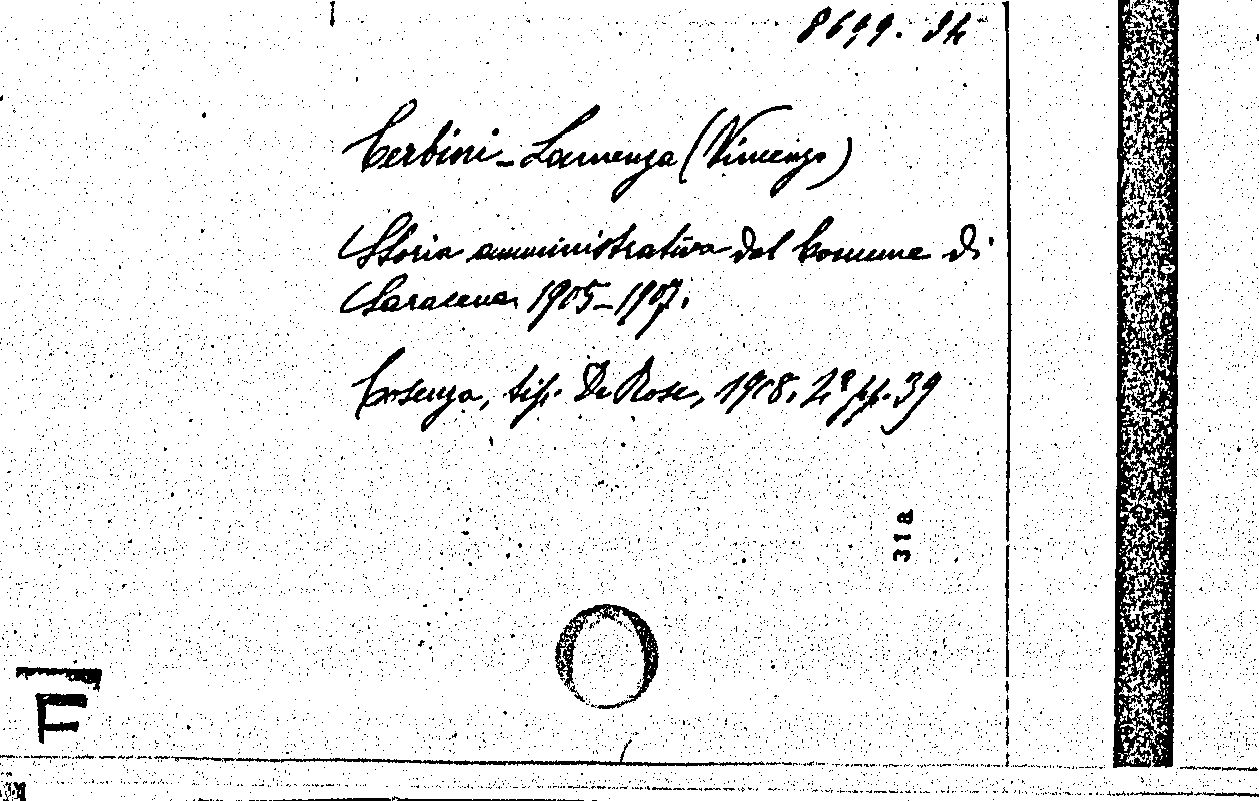 8699. 94
Cerbini-Lamenza (Vincenzo)
Storia amministrativa del Comune di
Saracena 1905-1907.
Cosenza, tip. De Rose, 1908. 2° pp. 39
31a
F